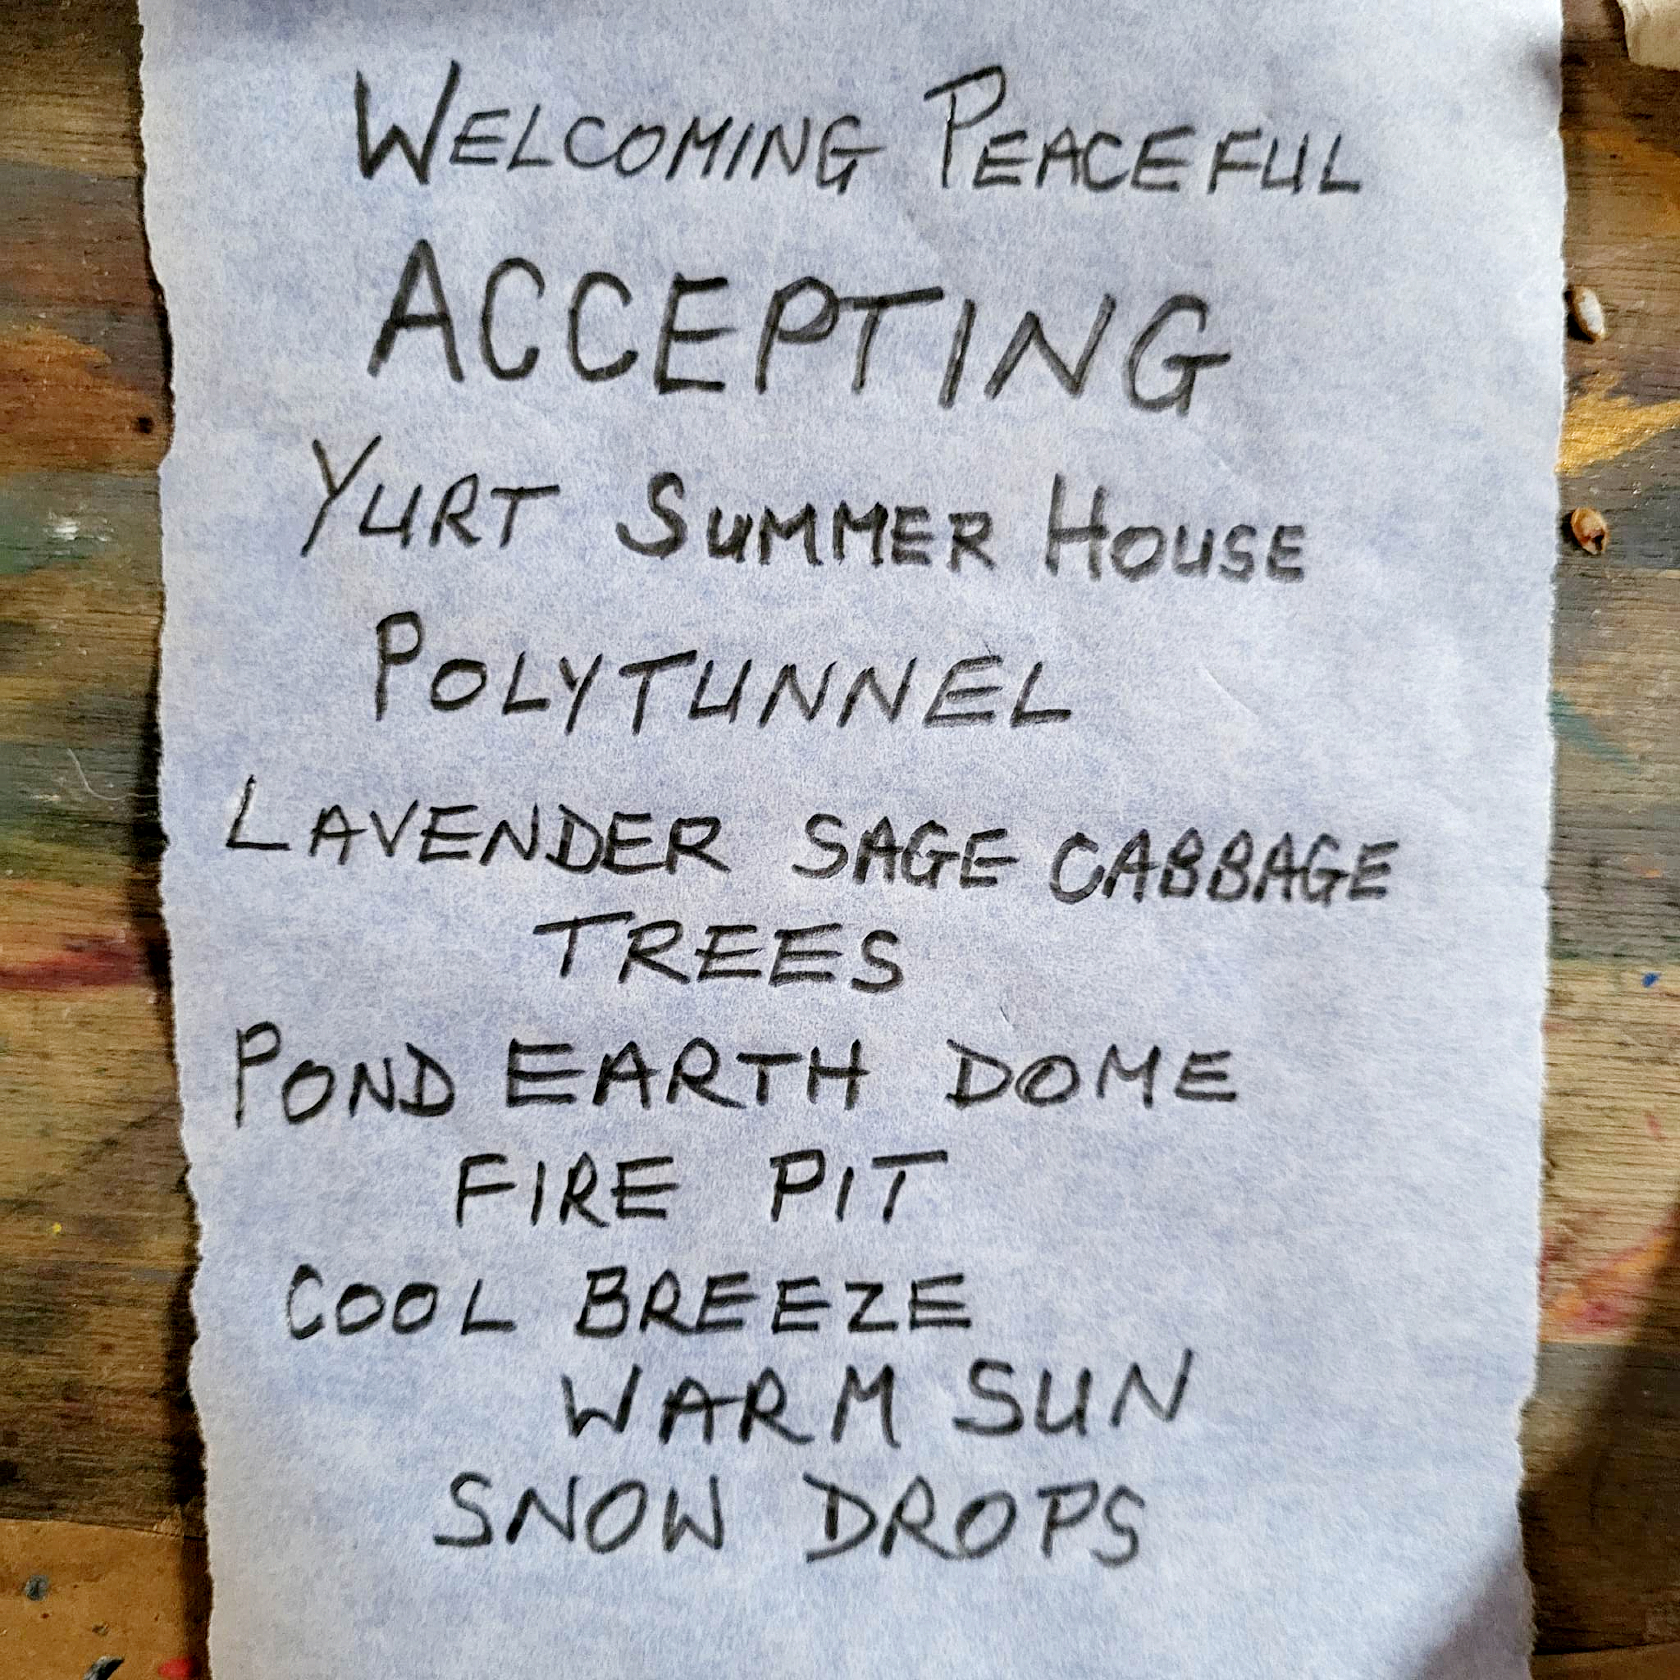 WELCOMING PEACEFUL
ACCEPTING
YURT SUMMER HOUSE
POLYTUNNEL
LAVENDER SAGE CABBAGE
TREES
POND EARTH DOME
FIRE PIT
COOL BREEZE
WARM SUN
SNOW DROPS